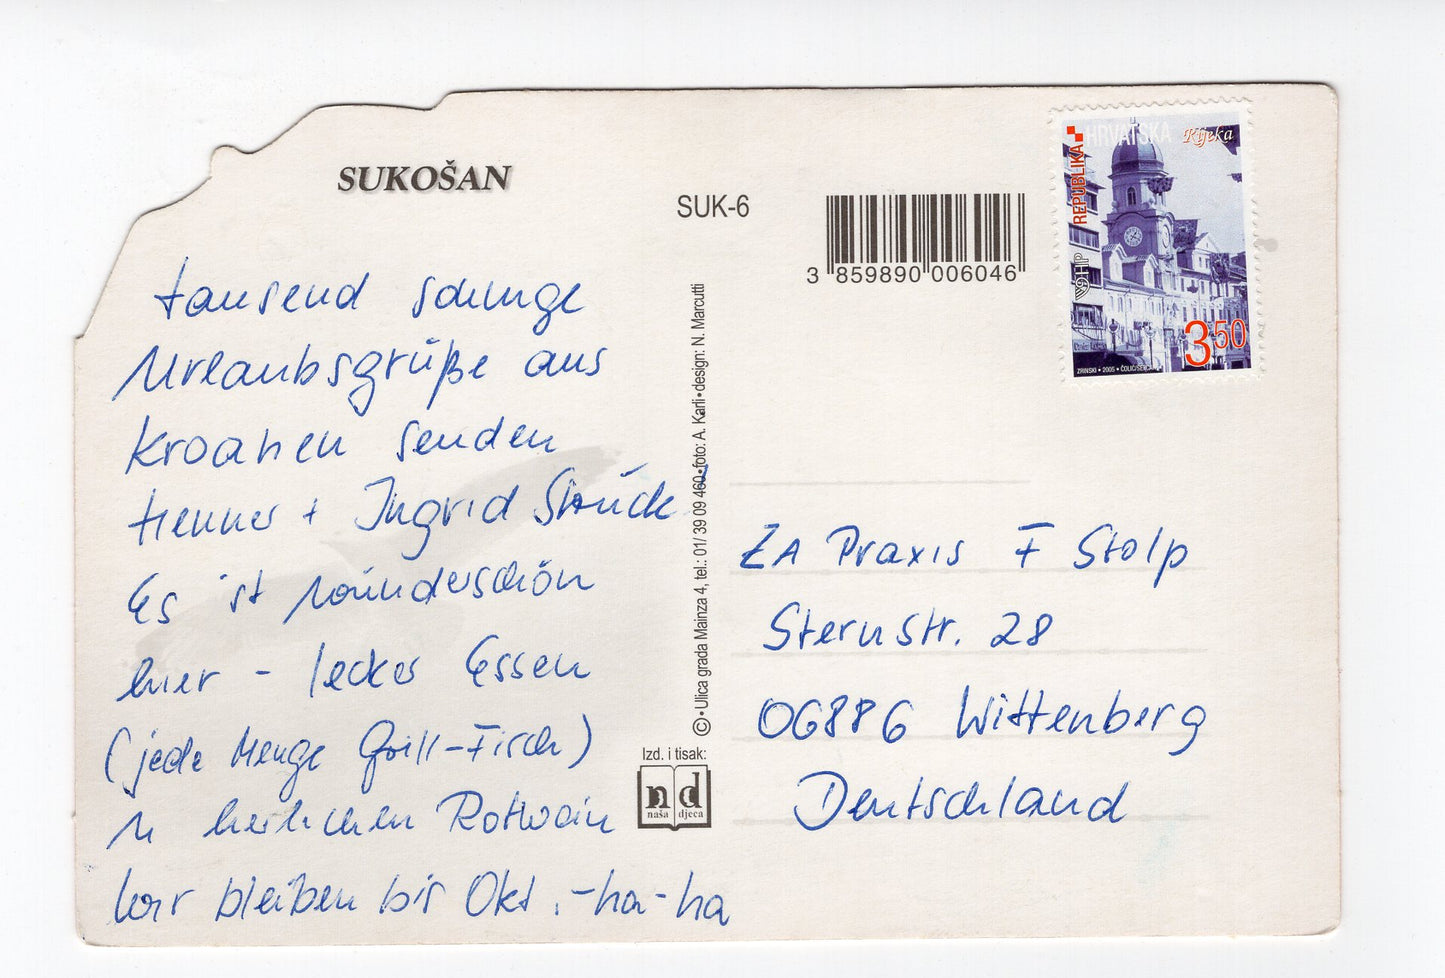 SUKOŠAN
SUK-6
3 859890 006046
REPUBLIKA HRVATSKA
Rijeka
HP
3,50
ZRINSKI • 2005 •
tausend sonnige
Urlaubsgrüße aus
Kroatien senden
Henner + Ingrid Strück
Es ist wunderschön
hier - leckes Essen
(jede Menge Grill-Fisch)
u herrlichen Rotwein
Wir bleiben bis Okt. -ha-ha
© • Ulica grada Mainza 4, tel.: 01/ 39 09 460 • foto: A. Karli • design: N. Marcutti
Izd. i tisak:
nd
naša djeca
ZA Praxis F Stolp
Sternstr. 28
06886 Wittenberg
Deutschland